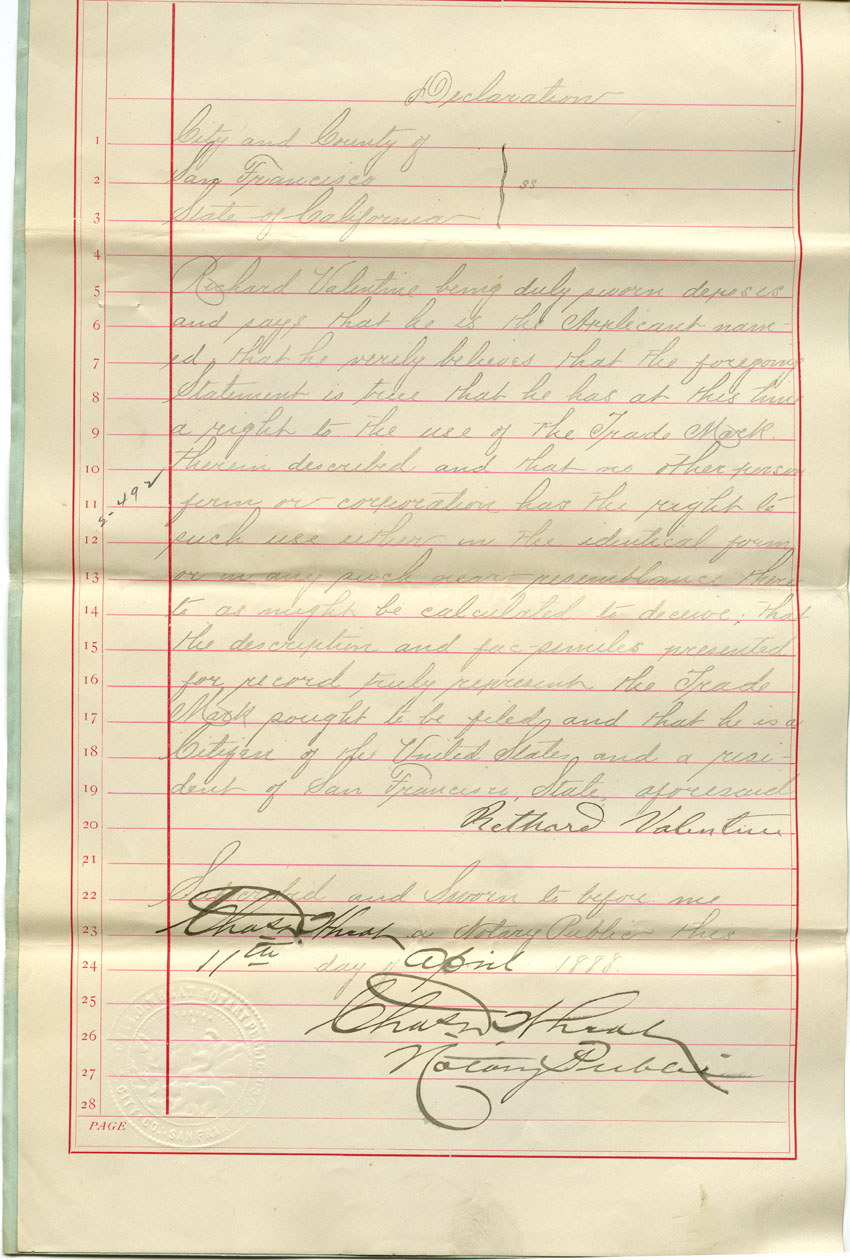 Declaration
1 City and County of
2 San Francisco } ss
3 State of California
4
5 Richard Valentine being duly sworn deposes
6 and says that he is the Applicant nam-
7 ed, that he verily believes that the foregoing
8 Statement is true that he has at this time
9 a right to the use of the Trade Mark.
10 therein described and that no other person
11 firm or corporation has the right to
12 such use either in the identical form
13 or in any such near resemblance there
14 to as might be calculated to deceive; that
15 the description and fac-similes presented
16 for record truly represent the Trade
17 Mark sought to be filed, and that he is a
18 Citizen of the United States, and a resi-
19 dent of San Francisco, State, aforesaid
20 Richard Valentine
21
22 Subscribed and Sworn to before me
23 a Notary Public this
24 11th day of April 1888.
25 Chas.
26 Notary Public
27
28
PAGE